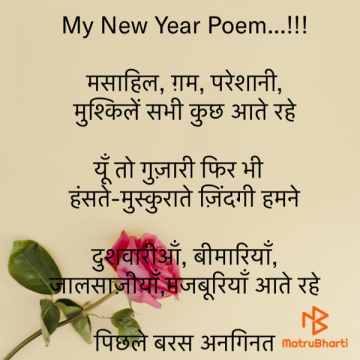 My New Year Poem...!!!
मसाहिल, ग़म, परेशानी,
मुश्किलें सभी कुछ आते रहे
यूँ तो गुज़ारी फिर भी
हंसते-मुस्कुराते ज़िंदगी हमने
दुशवारीआँ, बीमारियाँ,
जालसाज़ीयाँ,मजबूरियाँ आते रहे
पिछले बरस अनगिनत
MatruBharti